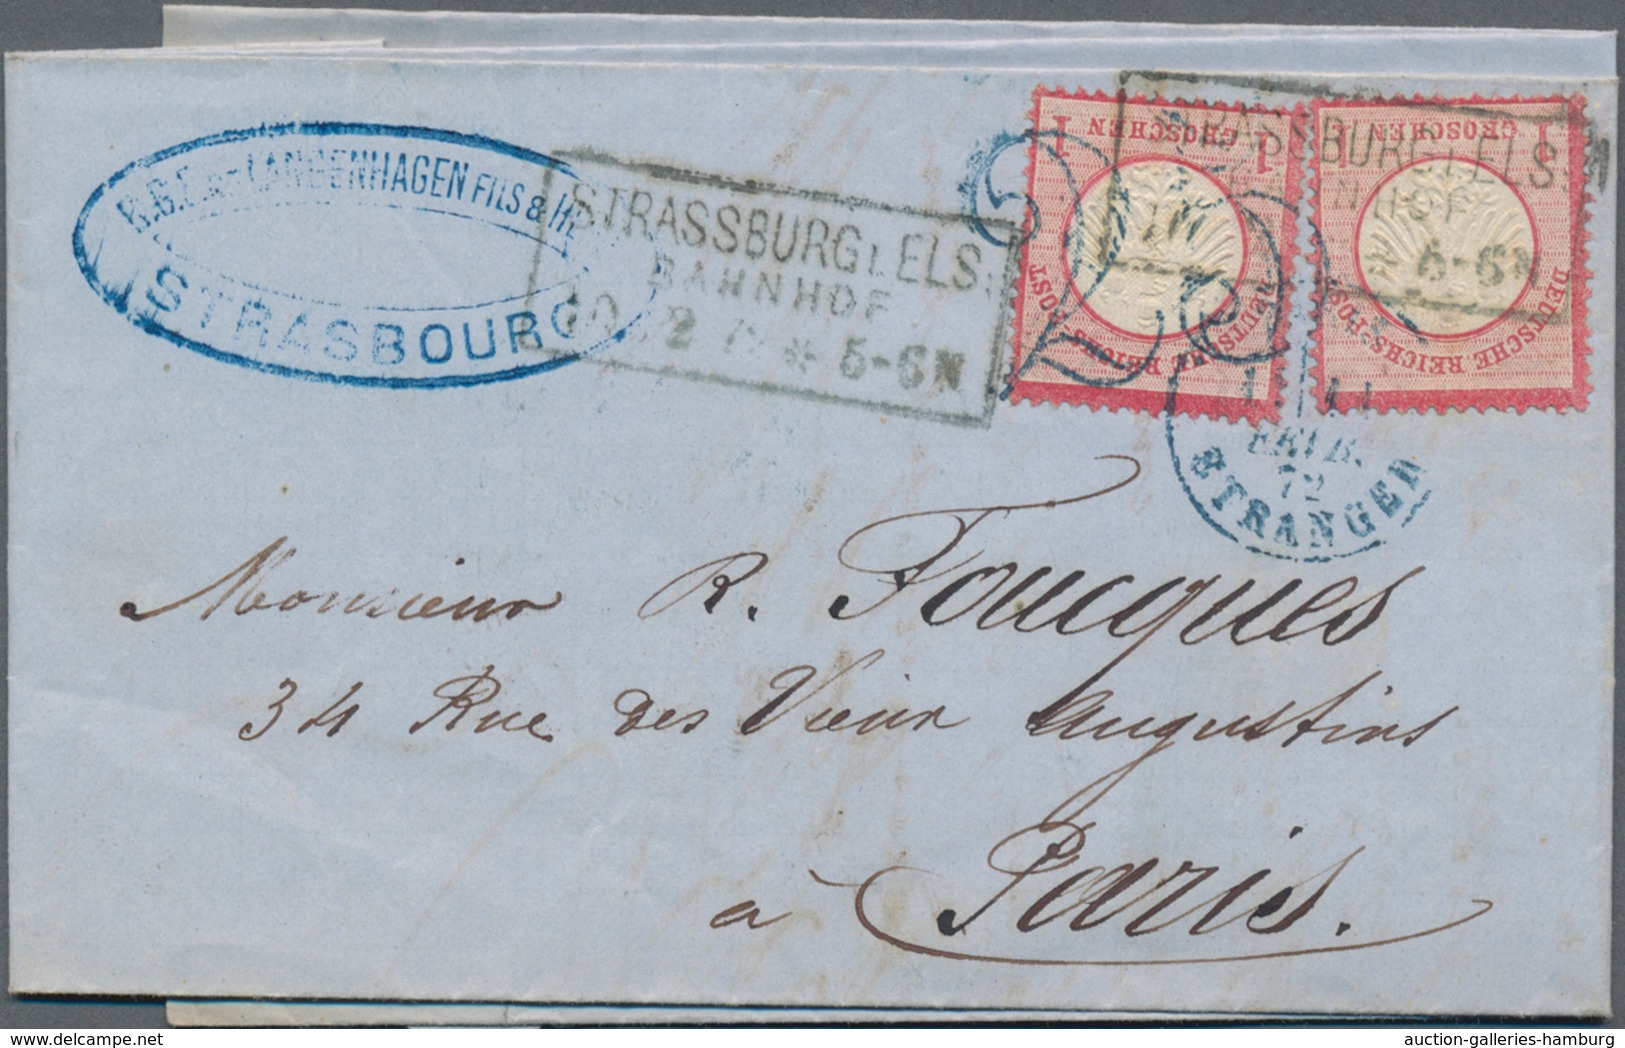 LANGENHAGEN FILS &
STRASBOURG
STRASSBURG i. ELS.
BAHNHOF
10 2 7 * 5-6N
1 GROSCHEN 1
DEUTSCHE REICHS-POST
1 GROSCHEN 1
DEUTSCHE REICHS-POST
STRASSBURG i. ELS.
BAHNHOF
5-6N
2
FEVR.
72
ETRANGER
Monsieur R. Foucques
34 Rue des Vieux Augustins
à Paris.
auction-galleries-hamburg